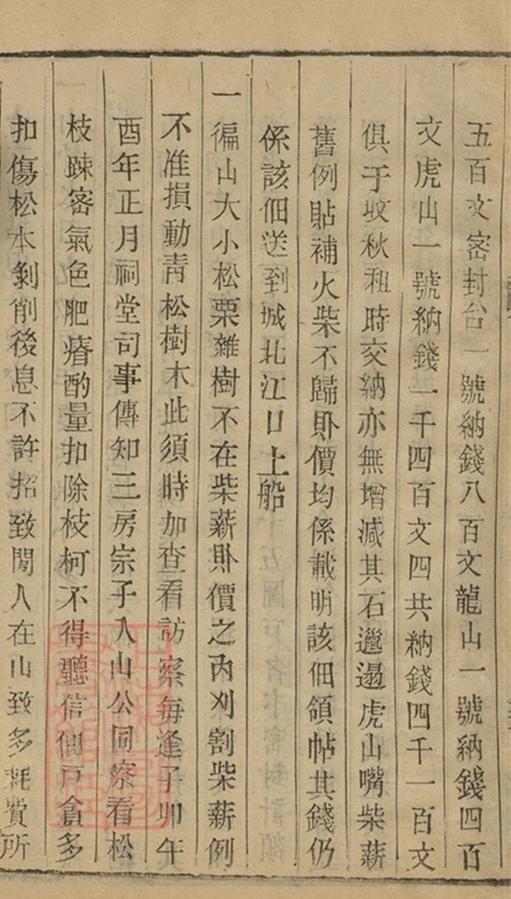 五百文密封台一號納錢八百文龍山一號納錢四百
文虎山一號納錢一千四百文四共納錢四千一百文
俱于收秋租時交納亦無增減其石邋遢虎山嘴柴薪
舊例貼補火柴不歸卧價均係載明該佃領帖其錢仍
係該佃送到城北江口上船
一徧山大小松栗雜樹不在柴薪卧價之內刈割柴薪例
不准損動青松樹木此須時加查看訪察每逢子卯午
酉年正月祠堂司事傳知三房宗子入山公同察看松
枝踈密氣色肥瘠酌量扣除枝柯不得聽信佃戶貪多
扣傷松本剝削後息不許招致閒人在山致多耗費所